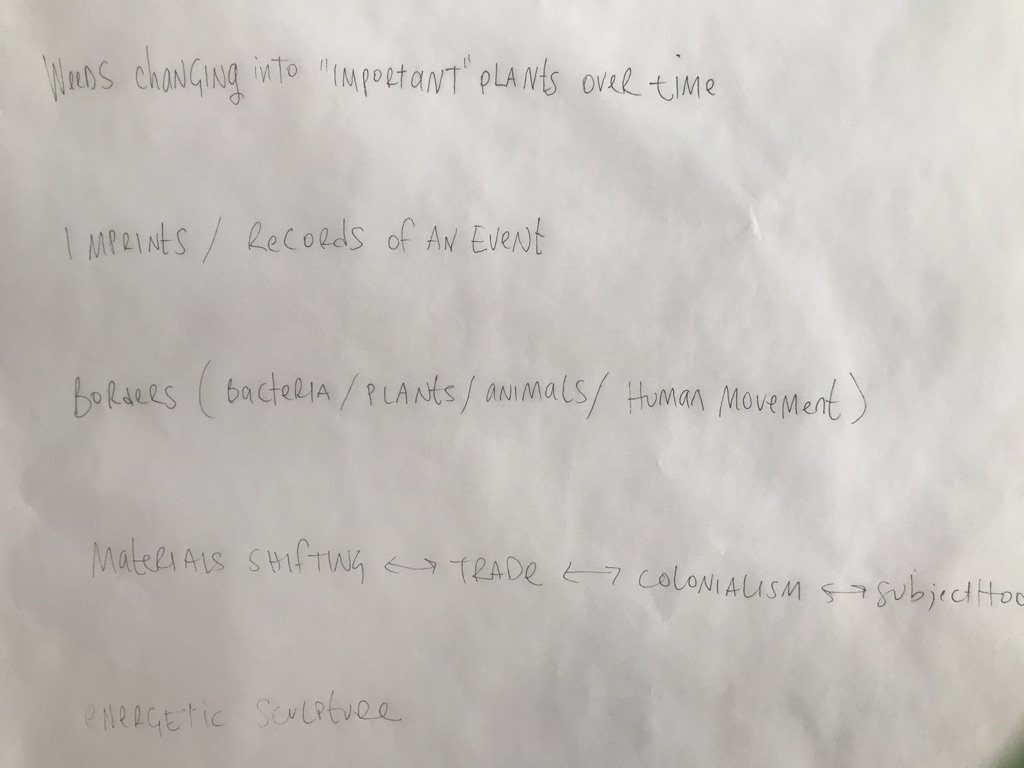 Weeds changing into "important" plants over time
Imprints / Records of an Event
Borders (Bacteria / Plants / animals / Human Movement)
Materials shifting ↔ Trade ↔ Colonialism ↔ subjecthoo
energetic sculpture